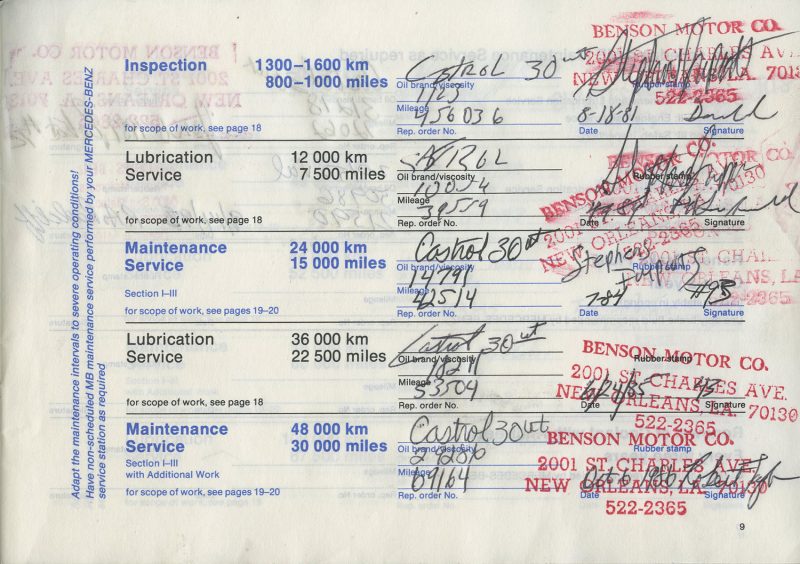 Inspection 1300–1600 km
800–1000 miles
for scope of work, see page 18
Castrol 30 wt
Oil brand/viscosity
1123
Mileage
456036
Rep. order No.
BENSON MOTOR CO.
2001 ST. CHARLES AV
NEW ORLEANS, LA. 7013
522-2365
Rubber stamp
8-18-81
Date
Signature
Lubrication 12 000 km
Service 7 500 miles
for scope of work, see page 18
Oil brand/viscosity
10054
Mileage
39559
Rep. order No.
BENSON MOTOR CO.
2001 ST. CHARLES
NEW ORLEANS, LA. 70130
522-2365
Rubber stamp
Date
Signature
Maintenance 24 000 km
Service 15 000 miles
Section I–III
for scope of work, see pages 19–20
Castrol 30 wt
Oil brand/viscosity
14791
Mileage
42514
Rep. order No.
Stephen
Rubber stamp
7-84 #93
Date
Signature
Lubrication 36 000 km
Service 22 500 miles
for scope of work, see page 18
Castrol 30 wt
Oil brand/viscosity
18211
Mileage
53504
Rep. order No.
BENSON MOTOR CO.
Rubber stamp
2001 ST. CHARLES AVE.
NEW ORLEANS, LA. 70130
522-2365
6/24/85 93
Date
Signature
Maintenance 48 000 km
Service 30 000 miles
Section I–III
with Additional Work
for scope of work, see pages 19–20
Castrol 30 wt
Oil brand/viscosity
Mileage
69164
Rep. order No.
BENSON MOTOR CO.
Rubber stamp
2001 ST. CHARLES AVE.
NEW ORLEANS, LA. 70130
522-2365
Oct 6 1986 Robert
Date
Signature
Adapt the maintenance intervals to severe operating conditions!
Have non-scheduled MB maintenance service performed by your MERCEDES-BENZ
service station as required
9